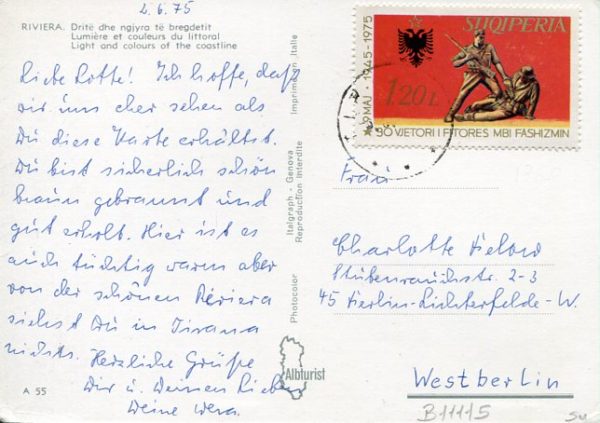 2.6.75
RIVIERA. Dritë dhe ngjyra të bregdetit
Lumière et couleurs du littoral
Light and colours of the coastline
Liebe Lotte! Ich hoffe, daß
wir uns eher sehen als
Du diese Karte erhältst.
Du bist sicherlich schön
braun gebrannt und
gut erholt. Hier ist es
auch tüchtig warm aber
von der schönen Riviera
siehst Du in Tirana
nichts. Herzliche Grüße
Dir u. Deinen Lieben
Deine Wera.
A 55
Imprimé en Italie
Italgraph - Genova
Reproduction Interdite
Photocolor
Albturist
SHQIPERIA
9 MAJ • 1945-1975
1.20 L
30 VJETORI I FITORES MBI FASHIZMIN
Frau
Charlotte
Stubenrauchstr. 2-3
45 Berlin-Lichterfelde-W.
Westberlin
B11115